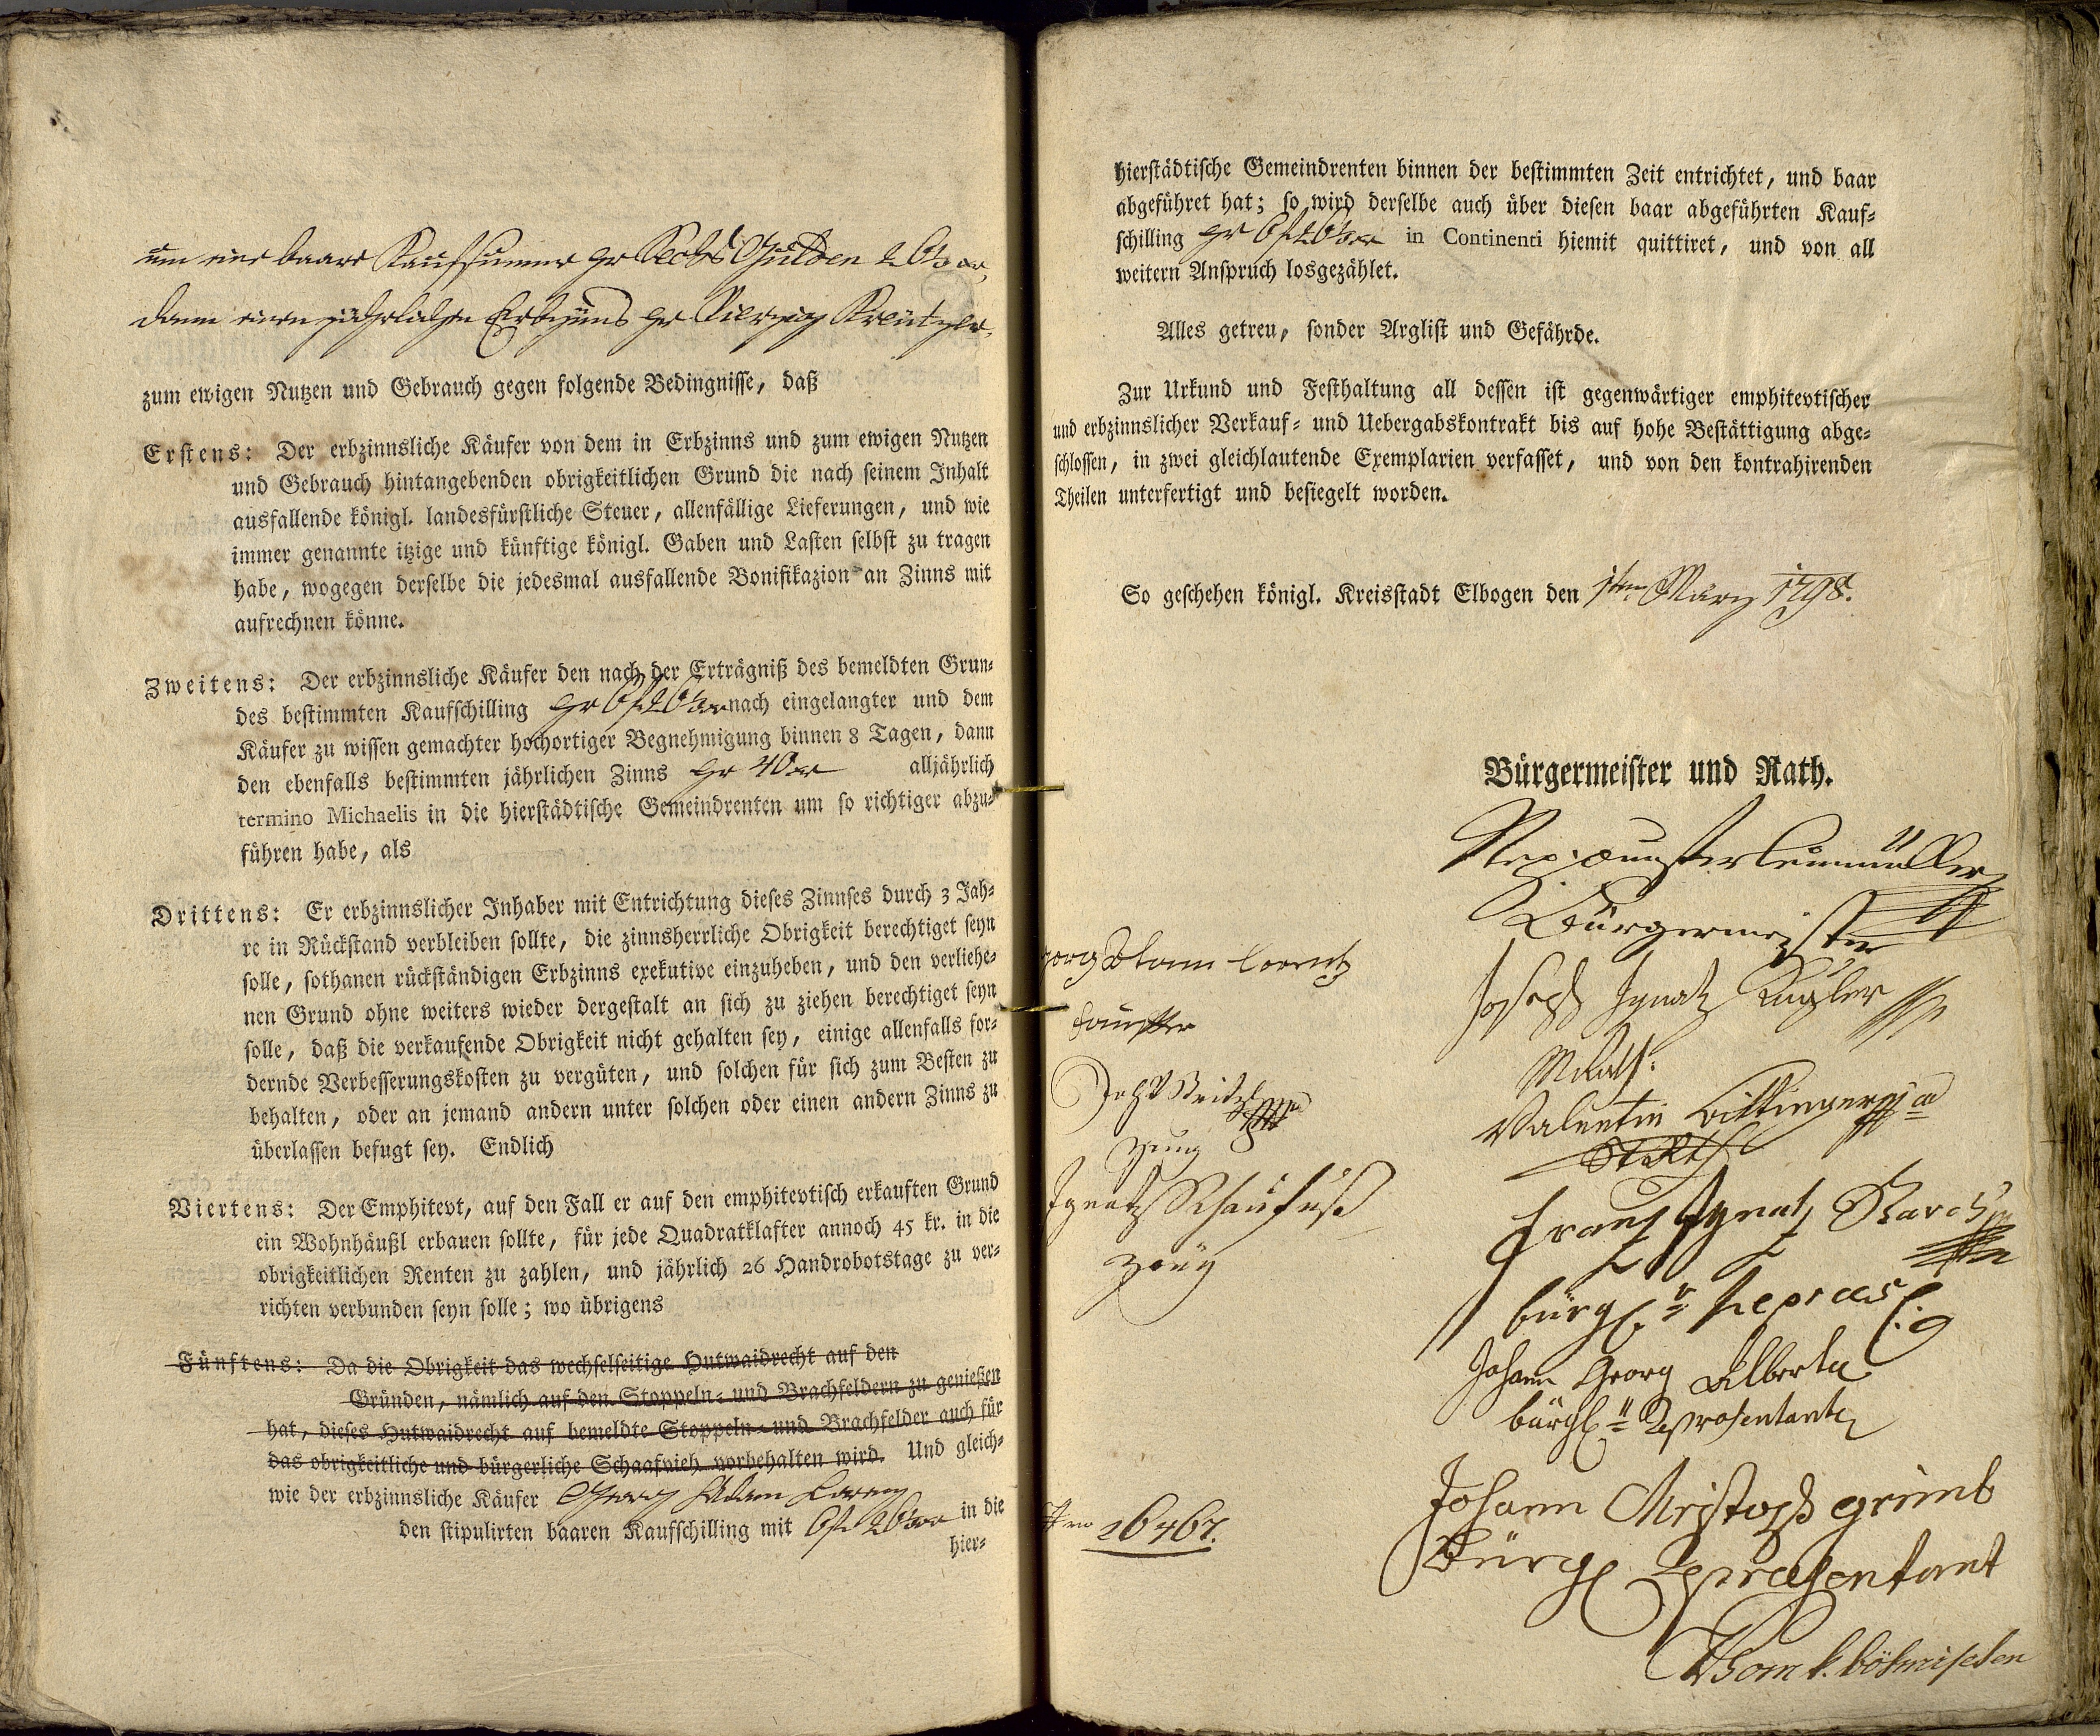 um eine baare Kaufsumme per Sechs Gulden 26 3/4 xr,
dann einen jährlichen Erbzinns per Vierzig Kreützer,
zum ewigen Nutzen und Gebrauch gegen folgende Bedingnisse, daß
Erstens: Der erbzinnsliche Käufer von dem in Erbzinns und zum ewigen Nutzen
und Gebrauch hintangebenden obrigkeitlichen Grund die nach seinem Inhalt
ausfallende königl. landesfürstliche Steuer, allenfällige Lieferungen, und wie
immer genannte itzige und künftige königl. Gaben und Lasten selbst zu tragen
habe, wogegen derselbe die jedesmal ausfallende Bonifikazion an Zinns mit
aufrechnen könne.
Zweitens: Der erbzinnsliche Käufer den nach der Erträgniß des bemeldten Grun-
des bestimmten Kaufschilling per 6 f nach eingelangter und dem
Käufer zu wissen gemachter hochortiger Begnehmigung binnen 8 Tagen, dann
den ebenfalls bestimmten jährlichen Zinns per 40 xr alljährlich
termino Michaelis in die hierstädtische Gemeindrenten um so richtiger abzu-
führen habe, als
Drittens: Er erbzinnslicher Inhaber mit Entrichtung dieses Zinnses durch 3 Jah-
re in Rückstand verbleiben sollte, die zinnsherrliche Obrigkeit berechtiget seyn
solle, sothanen rückständigen Erbzinns exekutive einzuheben, und den verliehe-
nen Grund ohne weiters wieder dergestalt an sich zu ziehen berechtiget seyn
solle, daß die verkaufende Obrigkeit nicht gehalten sey, einige allenfalls for-
dernde Verbesserungskosten zu vergüten, und solchen für sich zum Besten zu
behalten, oder an jemand andern unter solchen oder einen andern Zinns zu
überlassen befugt sey. Endlich
Viertens: Der Emphitevt, auf den Fall er auf den emphitevtisch erkauften Grund
ein Wohnhäußl erbauen sollte, für jede Quadratklafter annoch 45 kr. in die
obrigkeitlichen Renten zu zahlen, und jährlich 26 Handrobotstage zu ver-
richten verbunden seyn solle; wo übrigens
Fünftens: Da die Obrigkeit das wechselseitige Hutwaidrecht auf den
Gründen, nämlich auf den Stoppeln- und Brachfeldern zu genießen
hat, dieses Hutwaidrecht auf bemeldte Stoppeln- und Brachfelder auch für
das obrigkeitliche und bürgerliche Schaafvieh vorbehalten wird. Und gleich-
wie der erbzinnsliche Käufer Georg Adam Lorenz
den stipulirten baaren Kaufschilling mit 6 f in die
hier-
hierstädtische Gemeindrenten binnen der bestimmten Zeit entrichtet, und baar
abgeführet hat; so wird derselbe auch über diesen baar abgeführten Kauf-
schilling per 6 f in Continenti hiemit quittiret, und von all
weitern Anspruch losgezählet.
Alles getreu, sonder Arglist und Gefährde.
Zur Urkund und Festhaltung all dessen ist gegenwärtiger emphitevtischer
und erbzinnslicher Verkauf- und Uebergabskontrakt bis auf hohe Bestättigung abge-
schlossen, in zwei gleichlautende Exemplarien verfasset, und von den kontrahirenden
Theilen unterfertigt und besiegelt worden.
So geschehen königl. Kreisstadt Elbogen den 1ten März 1798.
Bürgermeister und Rath.
Bürgermeister
Lorentz
Joseph Ignatz Kugler
Kauffer
MRath.
Valentin
Zeug
Ignatz Schaufuß
Franz Ignatz
Zeüg
bürgl. Repraes
Johann Georg Alberta
bürgl. Representant
Johann Christoph Grimb
26467.
Bürgl Representant
Vom k. böhmischen